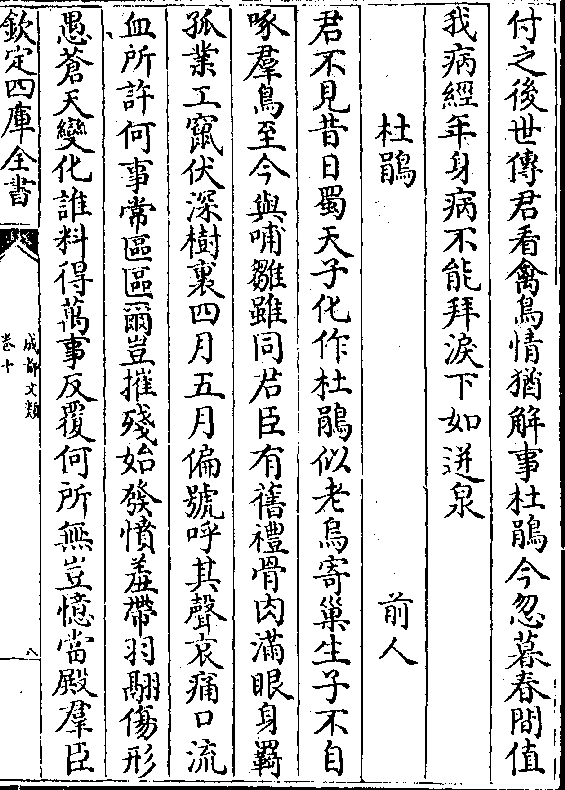 付之後世傳君看禽鳥情猶解事杜鵑今忽暮春間值
我病經年身病不能拜淚下如迸泉
杜鵑 前人
君不見昔日蜀天子化作杜鵑似老烏寄巢生子不自
啄羣鳥至今與哺雛雖同君臣有舊禮骨肉滿眼身羇
孤業工竄伏深樹裏四月五月偏號呼其聲哀痛口流
血所訴何事常區區爾豈摧殘始發憤羞帶羽翮傷形
愚蒼天變化誰料得萬事反覆何所無豈憶當殿羣臣
欽定四庫全書
成都文類
卷十
八